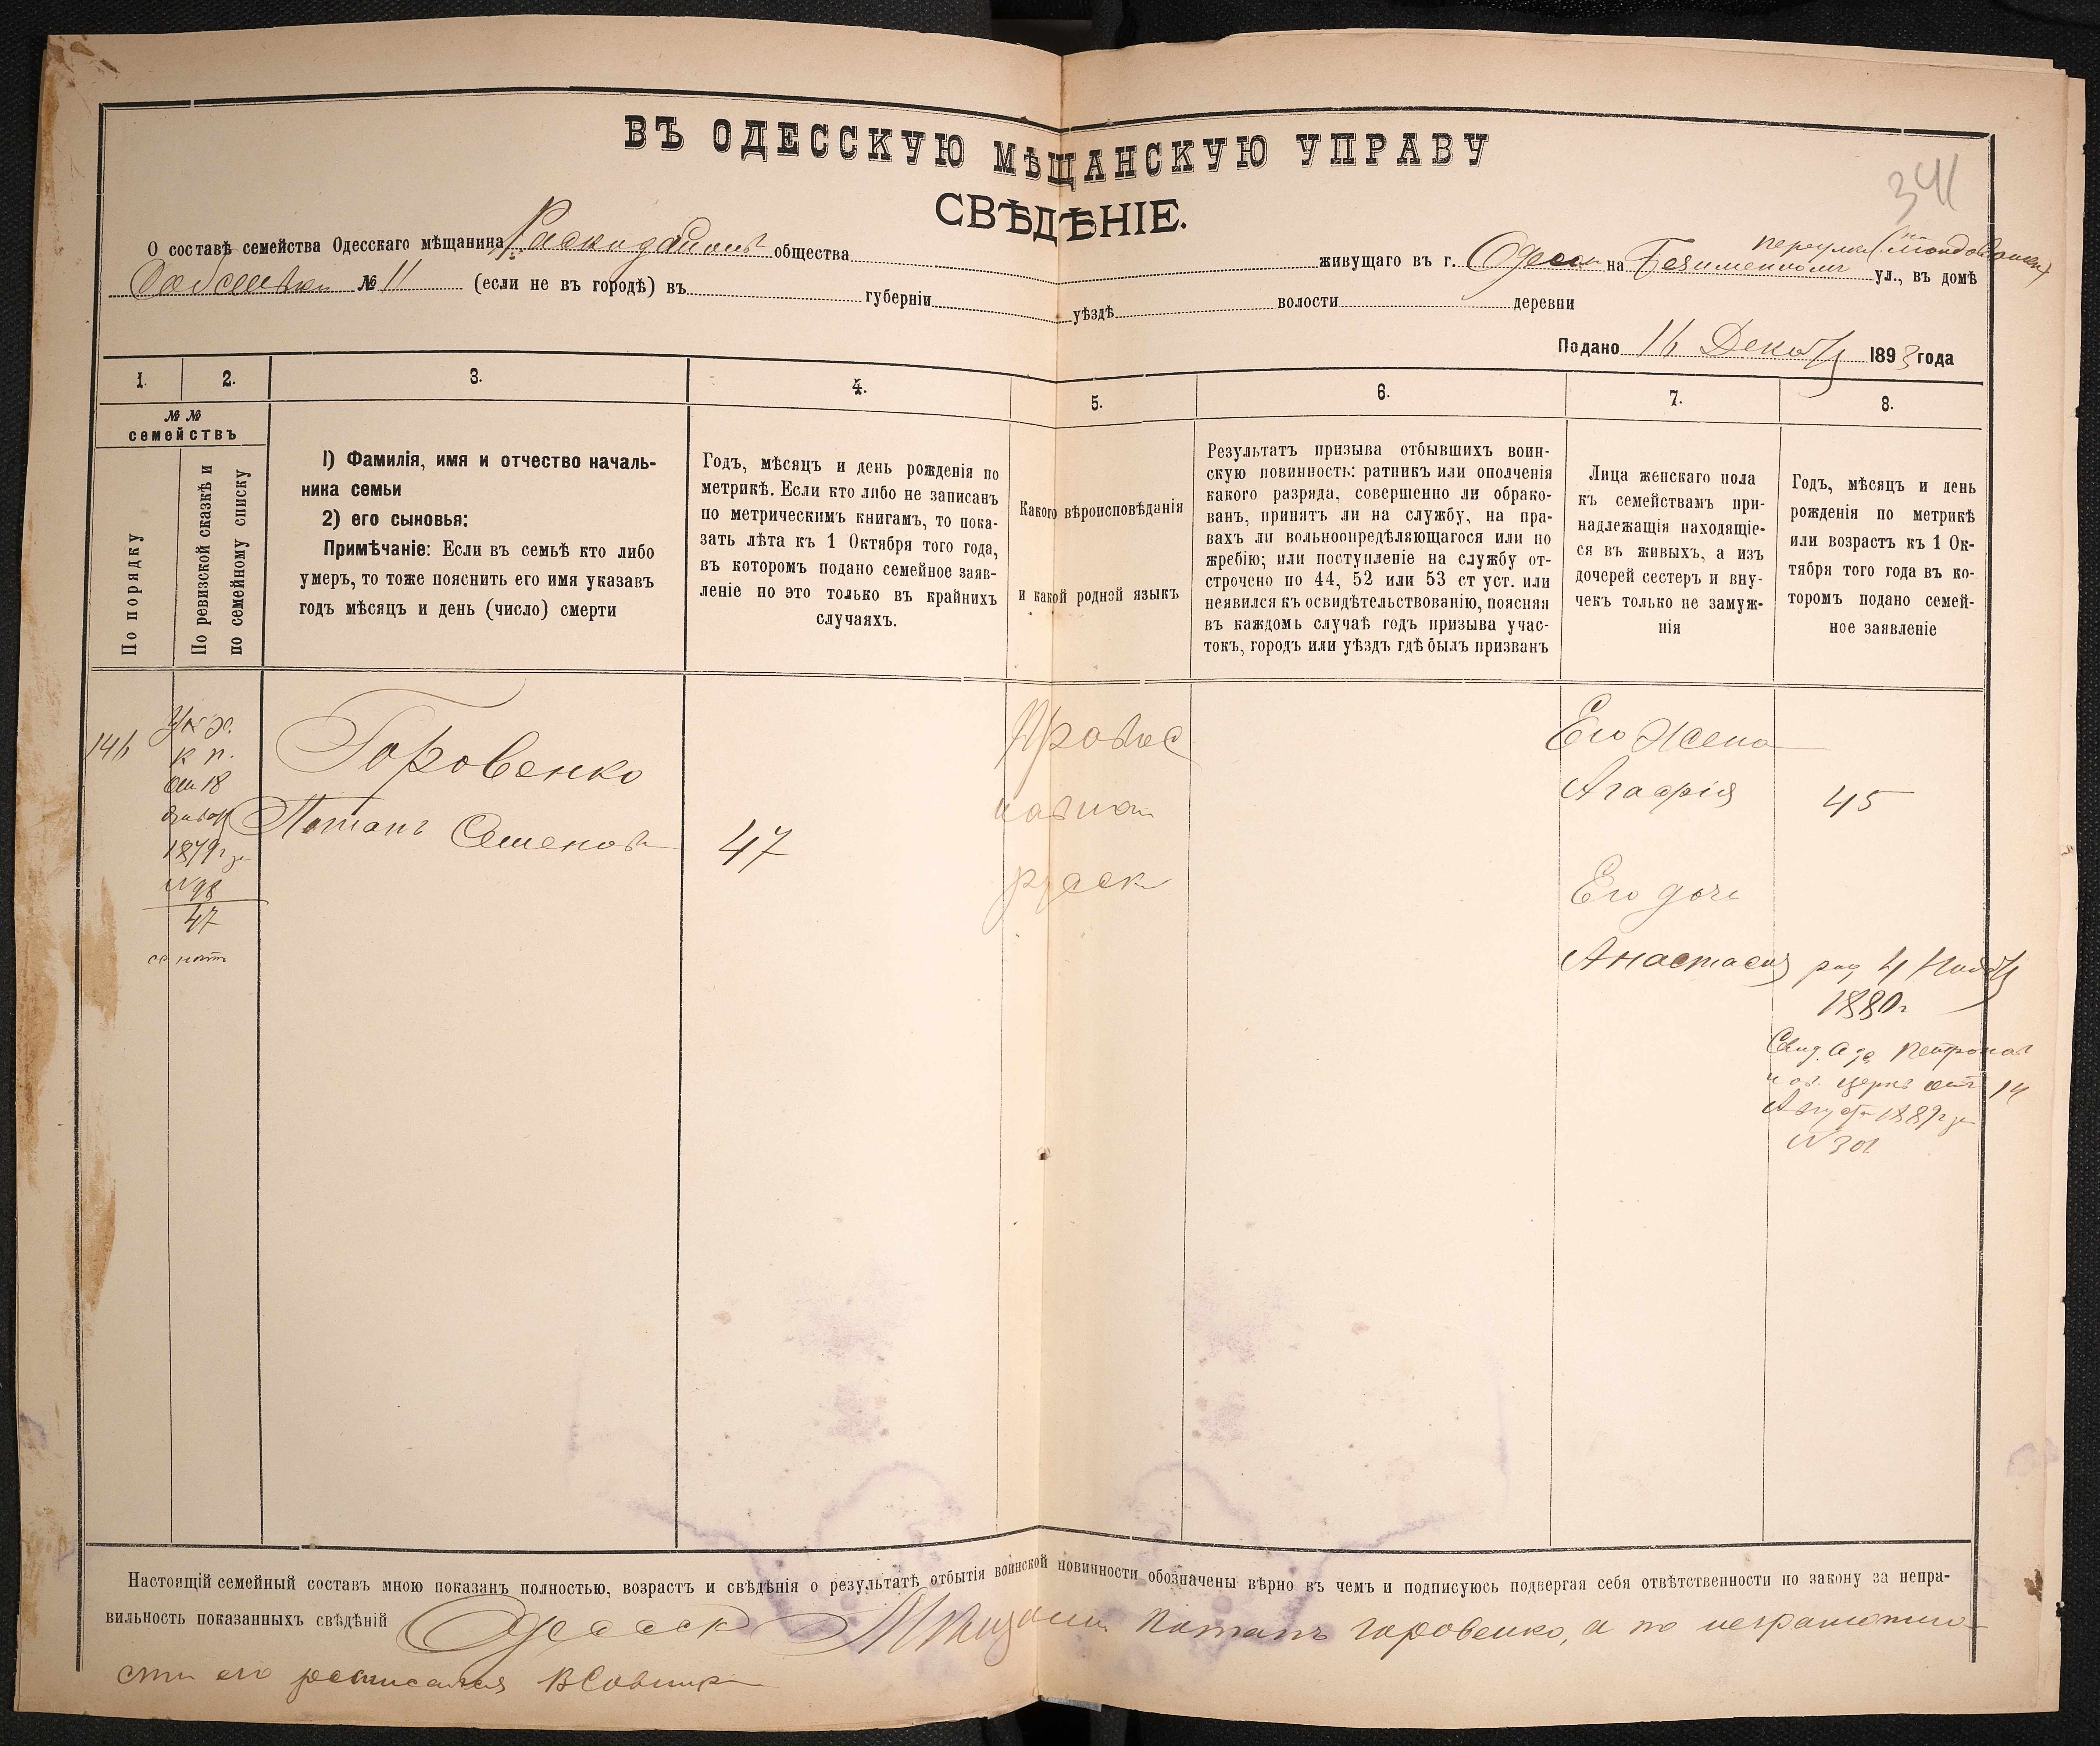 341
ВЪ ОДЕССКУЮ МѢЩАНСКУЮ УПРАВУ
СВѢДѢНІЕ.
О составѣ семейства Одесскаго мѣщанина общества живущаго въ г. Одессѣ на Безименномъ ул., въ домѣ
№ 11 (если не въ городѣ) въ губерніи уѣздѣ волости деревни
Подано 16 Декабр 1893 года
1. 2. 3. 4. 5. 6. 7. 8.
№ №
семействъ
По порядку
По ревизской сказкѣ и
по семейному списку
1) Фамилія, имя и отчество началь-
ника семьи
2) его сыновья:
Примѣчаніе: Если въ семьѣ кто либо
умеръ, то тоже пояснить его имя указавъ
годъ мѣсяцъ и день (число) смерти
Годъ, мѣсяцъ и день рожденія по
метрикѣ. Если кто либо не записанъ
по метрическимъ книгамъ, то пока-
зать лѣта къ 1 Октября того года,
въ которомъ подано семейное заяв-
леніе но это только въ крайнихъ
случаяхъ.
Какого вѣроисповѣданія
и какой родной языкъ
Результатъ призыва отбывшихъ воин-
скую повинность: ратникъ или ополченія
какого разряда, совершенно ли обрако-
ванъ, принятъ ли на службу, на пра-
вахъ ли вольноопредѣляющагося или по
жребію; или поступленіе на службу от-
строчено по 44, 52 или 53 ст уст. или
неявился къ освидѣтельствованію, поясняя
въ каждомъ случаѣ годъ призыва учас-
токъ, городъ или уѣздъ гдѣ былъ призванъ
Лица женскаго пола
къ семействамъ при-
надлежащія находящіе-
ся въ живыхъ, а изъ
дочерей сестеръ и вну-
чекъ только не замуж-
нія
Годъ, мѣсяцъ и день
рожденія по метрикѣ
или возрастъ къ 1 Ок-
тября того года въ ко-
торомъ подано семей-
ное заявленіе
146
Ук. Х.
к п.
от 18
1879 г за
№ 98
47
Горовенко
Потапъ Семеновъ
47
Правос
лавная
русск
Его Жена
Агафія 45
Его дочь
Анастасія род 4 Ноябр
1880 г
Свид. Оде Петропав
церкв отъ 14
Августа 1889 г за
№ 301
Настоящій семейный составъ мною показанъ полностью, возрастъ и свѣдѣнія о результатѣ отбытія воинской повинности обозначены вѣрно въ чемъ и подписуюсь подвергая себя отвѣтственности по закону за непра-
вильность показанныхъ свѣдѣній Одесск Мѣщани Потапъ Горовенко, а по неграмотно-
сти его росписался